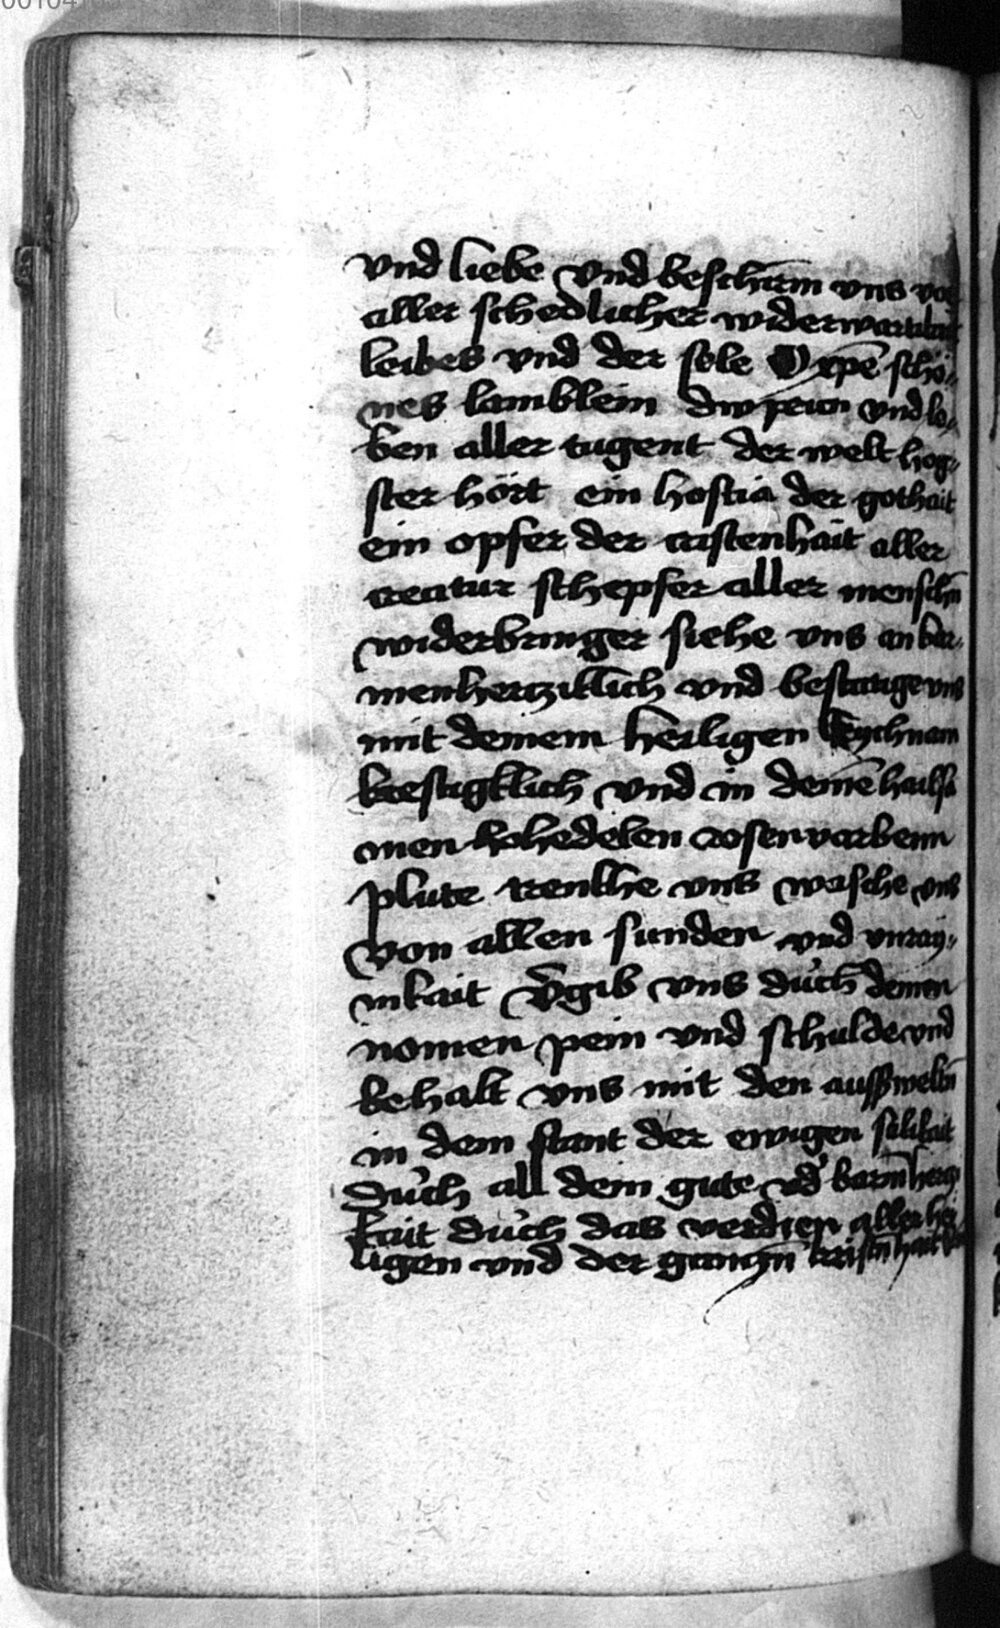 vnd liebe vnd beschirm vns vor
aller schedlicher widerwartikait
leibes vnd der sele O xpē schö⸗
nes lamblein dw prun vnd le⸗
ben aller tugent der welt hog⸗
ster hört ein hostia der gothait
ein opfer der cristenhait aller
creatur schepfer aller menschn̄
widerbringer siehe vns an bar⸗
menhertziklich vnd bestatige vns
mit deinem heiligen leychnam
krestigklich vnd in deinē hailsa
men hohedelen rosenvarbenn
plute trenkhe vns wasche vns
von allen sunden vnd vnray⸗
nikait v̄gib vns durch deinen
nomen pein vnd schulde vnd
behalt vns mit den ausswelin̄
in dem stant der ewigen selikait
durch all dein gute vnd barm̄hertzi
kait durch das verdien aller hei
ligen vnd der gantzn̄ kristn̄hait